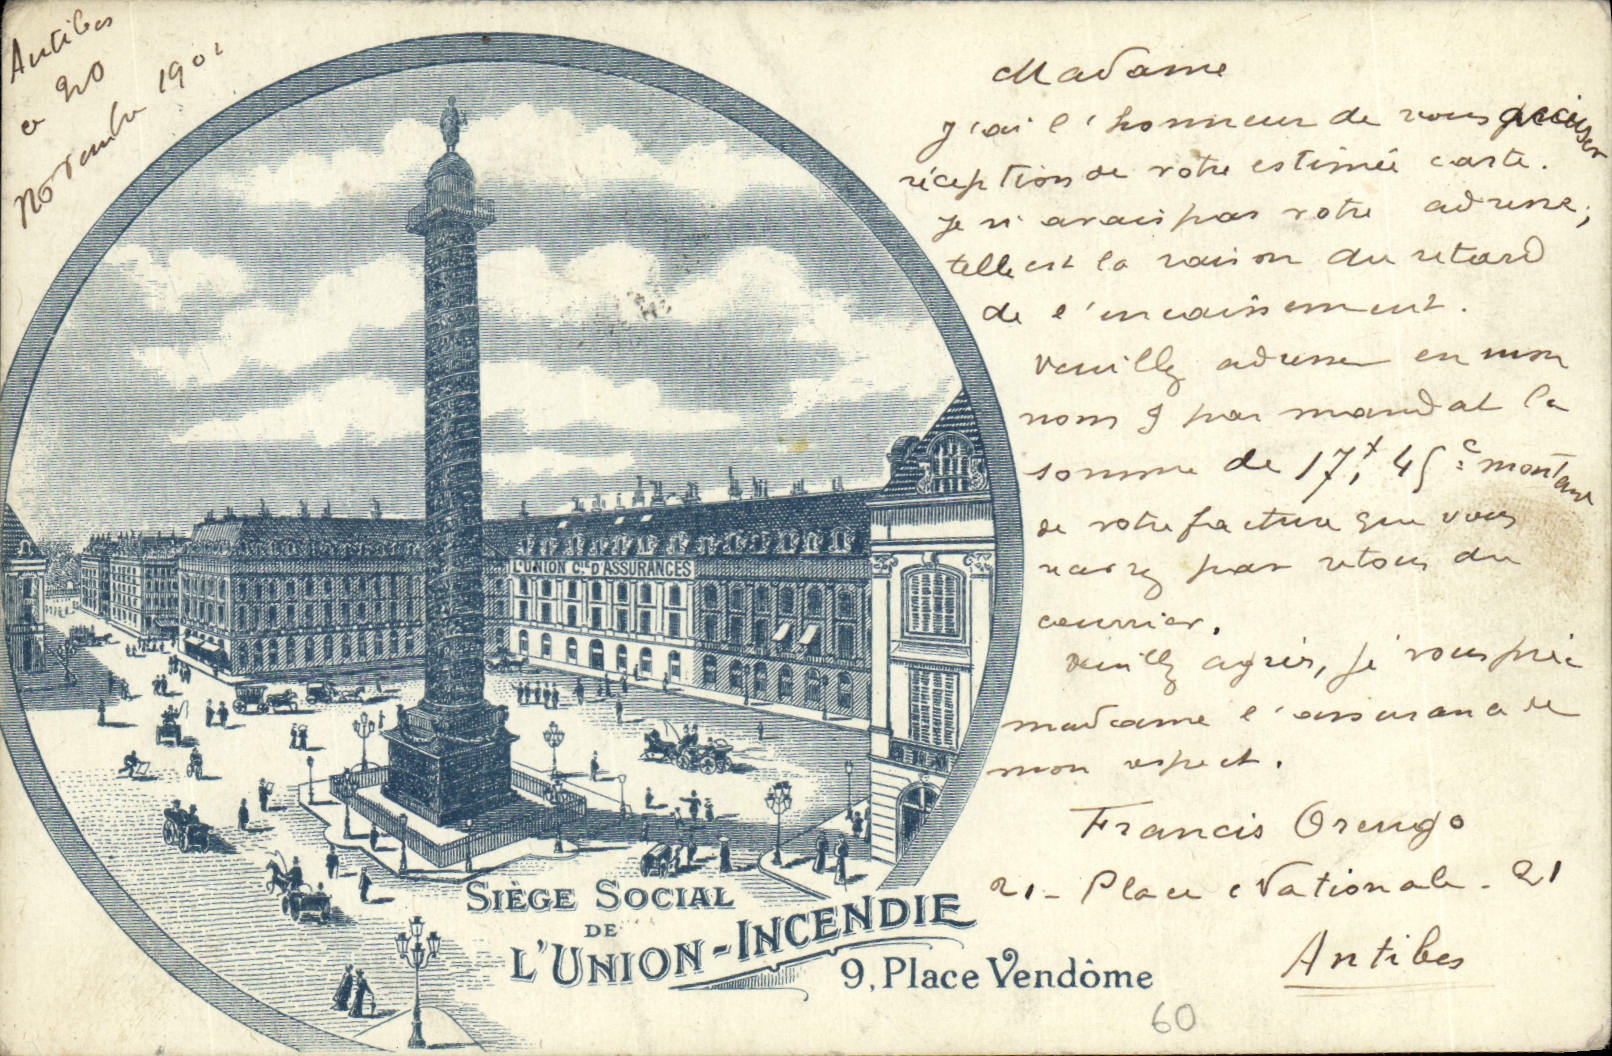 Antibes
20
Novembre 1902
Madame
J'ai l'honneur de vous accuser
réception de votre estimée carte.
Je n'avais pas votre adresse,
telle est la raison du retard
de l'encaissement.
Veuillez adresser en mon
nom & par mandat la
somme de 17f, 45c: montant
de votre facture que vous
par retour du
courrier.
Veuillez agréer, je vous prie
madame l'assurance de
mon respect.
Francis Orengo
21 - Place Nationale - 21
Antibes
L'UNION Cie D'ASSURANCES
SIÈGE SOCIAL
DE
L'UNION-INCENDIE
9, Place Vendôme
60